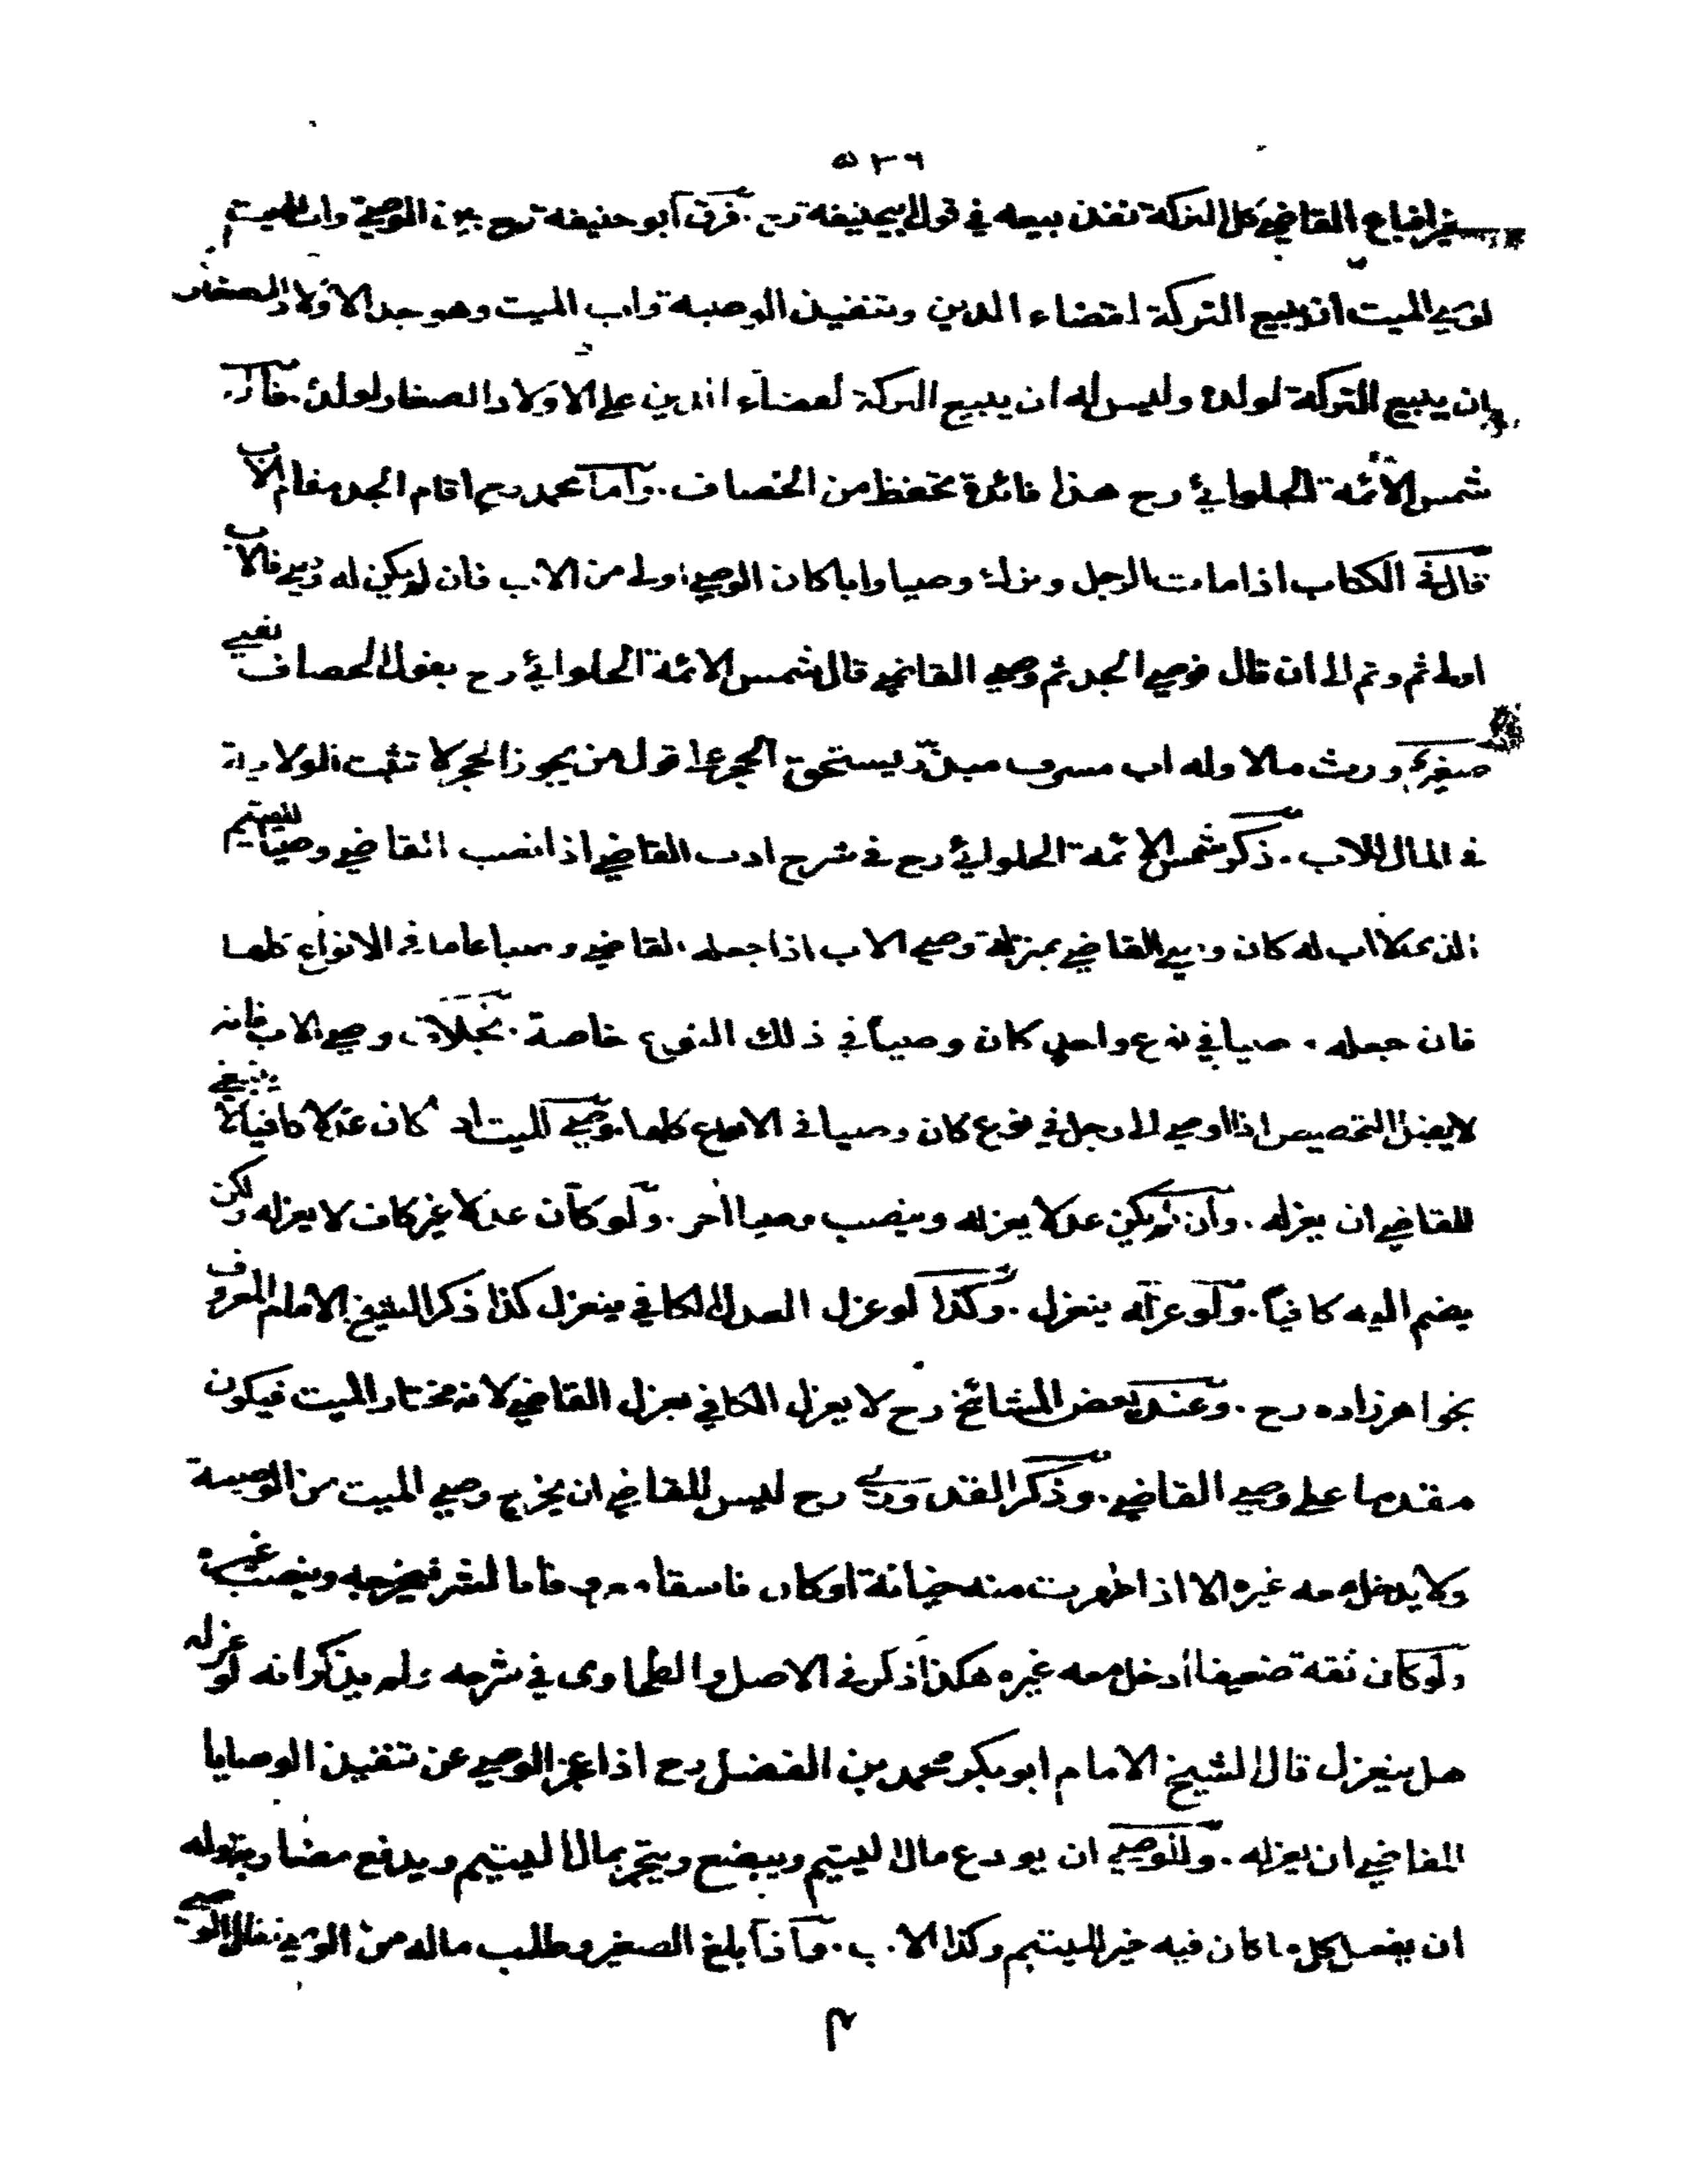 ٥٢٦
فباع القاضي كل التركة نفذ بيعه في قول ابيحنيفة رح . فرق ابو حنيفة رح بين الوصي واب الميت
لوصي الميت ان يبيع التركة لقضاء الدين وتنفيذ الوصية واب الميت وهو جد الاولاد الصغار
ان يبيع التركة لولده وليس له ان يبيع التركة لقضاء الدين على الاولاد الصغار لولده . قال
شمس الائمة الحلوائي رح هذا فائدة تحفظ من الخصاف . واما محمد رح اقام الجد مقام الاب
قال في الكتاب اذا مات الرجل وترك وصيا وابا كان الوصي اولى من الاب فان لم يكن له وصي فالاب
اولى ثم وثم الى ان قال فوصي الجد ثم وصي القاضي قال شمس الائمة الحلوائي رح بقول الخصاف نفتي
صغير ورث مالا وله اب مسرف مبذر يستحق الحجر على قول من يجوز الحجر لا تثبت الولاية
في المال للاب . ذكر شمس الائمة الحلوائي رح في شرح ادب القاضي اذا نصب القاضي وصيا لليتيم
الذي لا اب له كان وصي القاضي بمنزلة وصي الاب اذا جعله القاضي وصيا عاما في الانواع كلها
فان جعله وصيا في نوع واحد كان وصيا في ذلك النوع خاصة . بخلاف وصي الاب فانه
لا يقبل التخصيص اذا اوصى الى رجل في نوع كان وصيا في الانواع كلها . وصي الميت اذا كان عدلا كافيا لا ينبغي
للقاضي ان يعزله . وان لم يكن عدلا يعزله وينصب وصيا اخر . ولو كان عدلا غير كاف لا يعزله ولكن
يضم اليه كافيا . ولو عزله ينعزل . وكذا لو عزل العدل الكافي ينعزل كذا ذكر الشيخ الامام المعروف
بخواهرزاده رح . وعند بعض المشائخ رح لا يعزل الكافي بعزل القاضي لانه مختار الميت فيكون
مقدما على وصي القاضي . وذكر القدوري رح ليس للقاضي ان يخرج وصي الميت من الوصية
ولا يدخل معه غيره الا اذا ظهرت منه خيانة او كان فاسقا معروفا بالشر فيخرجه وينصب غيره
ولو كان ثقة ضعيفا ادخل معه غيره هكذا ذكر في الاصل والطحاوى في شرحه ولم يذكر انه لو عزله
هل ينعزل قال الشيخ الامام ابو بكر محمد بن الفضل رح اذا عجز الوصي عن تنفيذ الوصايا
للقاضي ان يعزله . وللوصي ان يودع مال اليتيم ويبضع ويتجر بمال اليتيم ويدفع مضاربة وله
ان يفعل كل ما كان فيه خير لليتيم وكذا الاب . واذا بلغ الصغير وطلب ماله من الوصي فقال الوصي